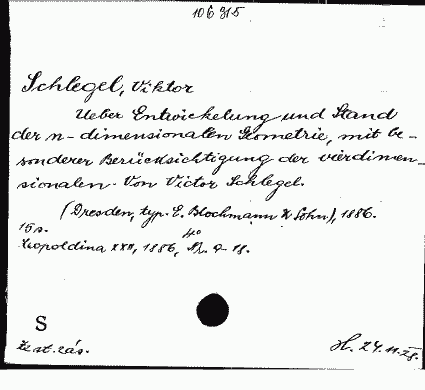 106 915
Schlegel, Viktor
Ueber Entwickelung und Stand
der n-dimensionalen Geometrie, mit be-
sonderer Berücksichtigung der vierdimen-
sionalen. Von Victor Schlegel.
(Dresden, typ. E. Blochmann & Sohn), 1886.
15 s. 4°
Leopoldina XXII, 1886, Nr. 9-18.
S
H. 24.11.28.